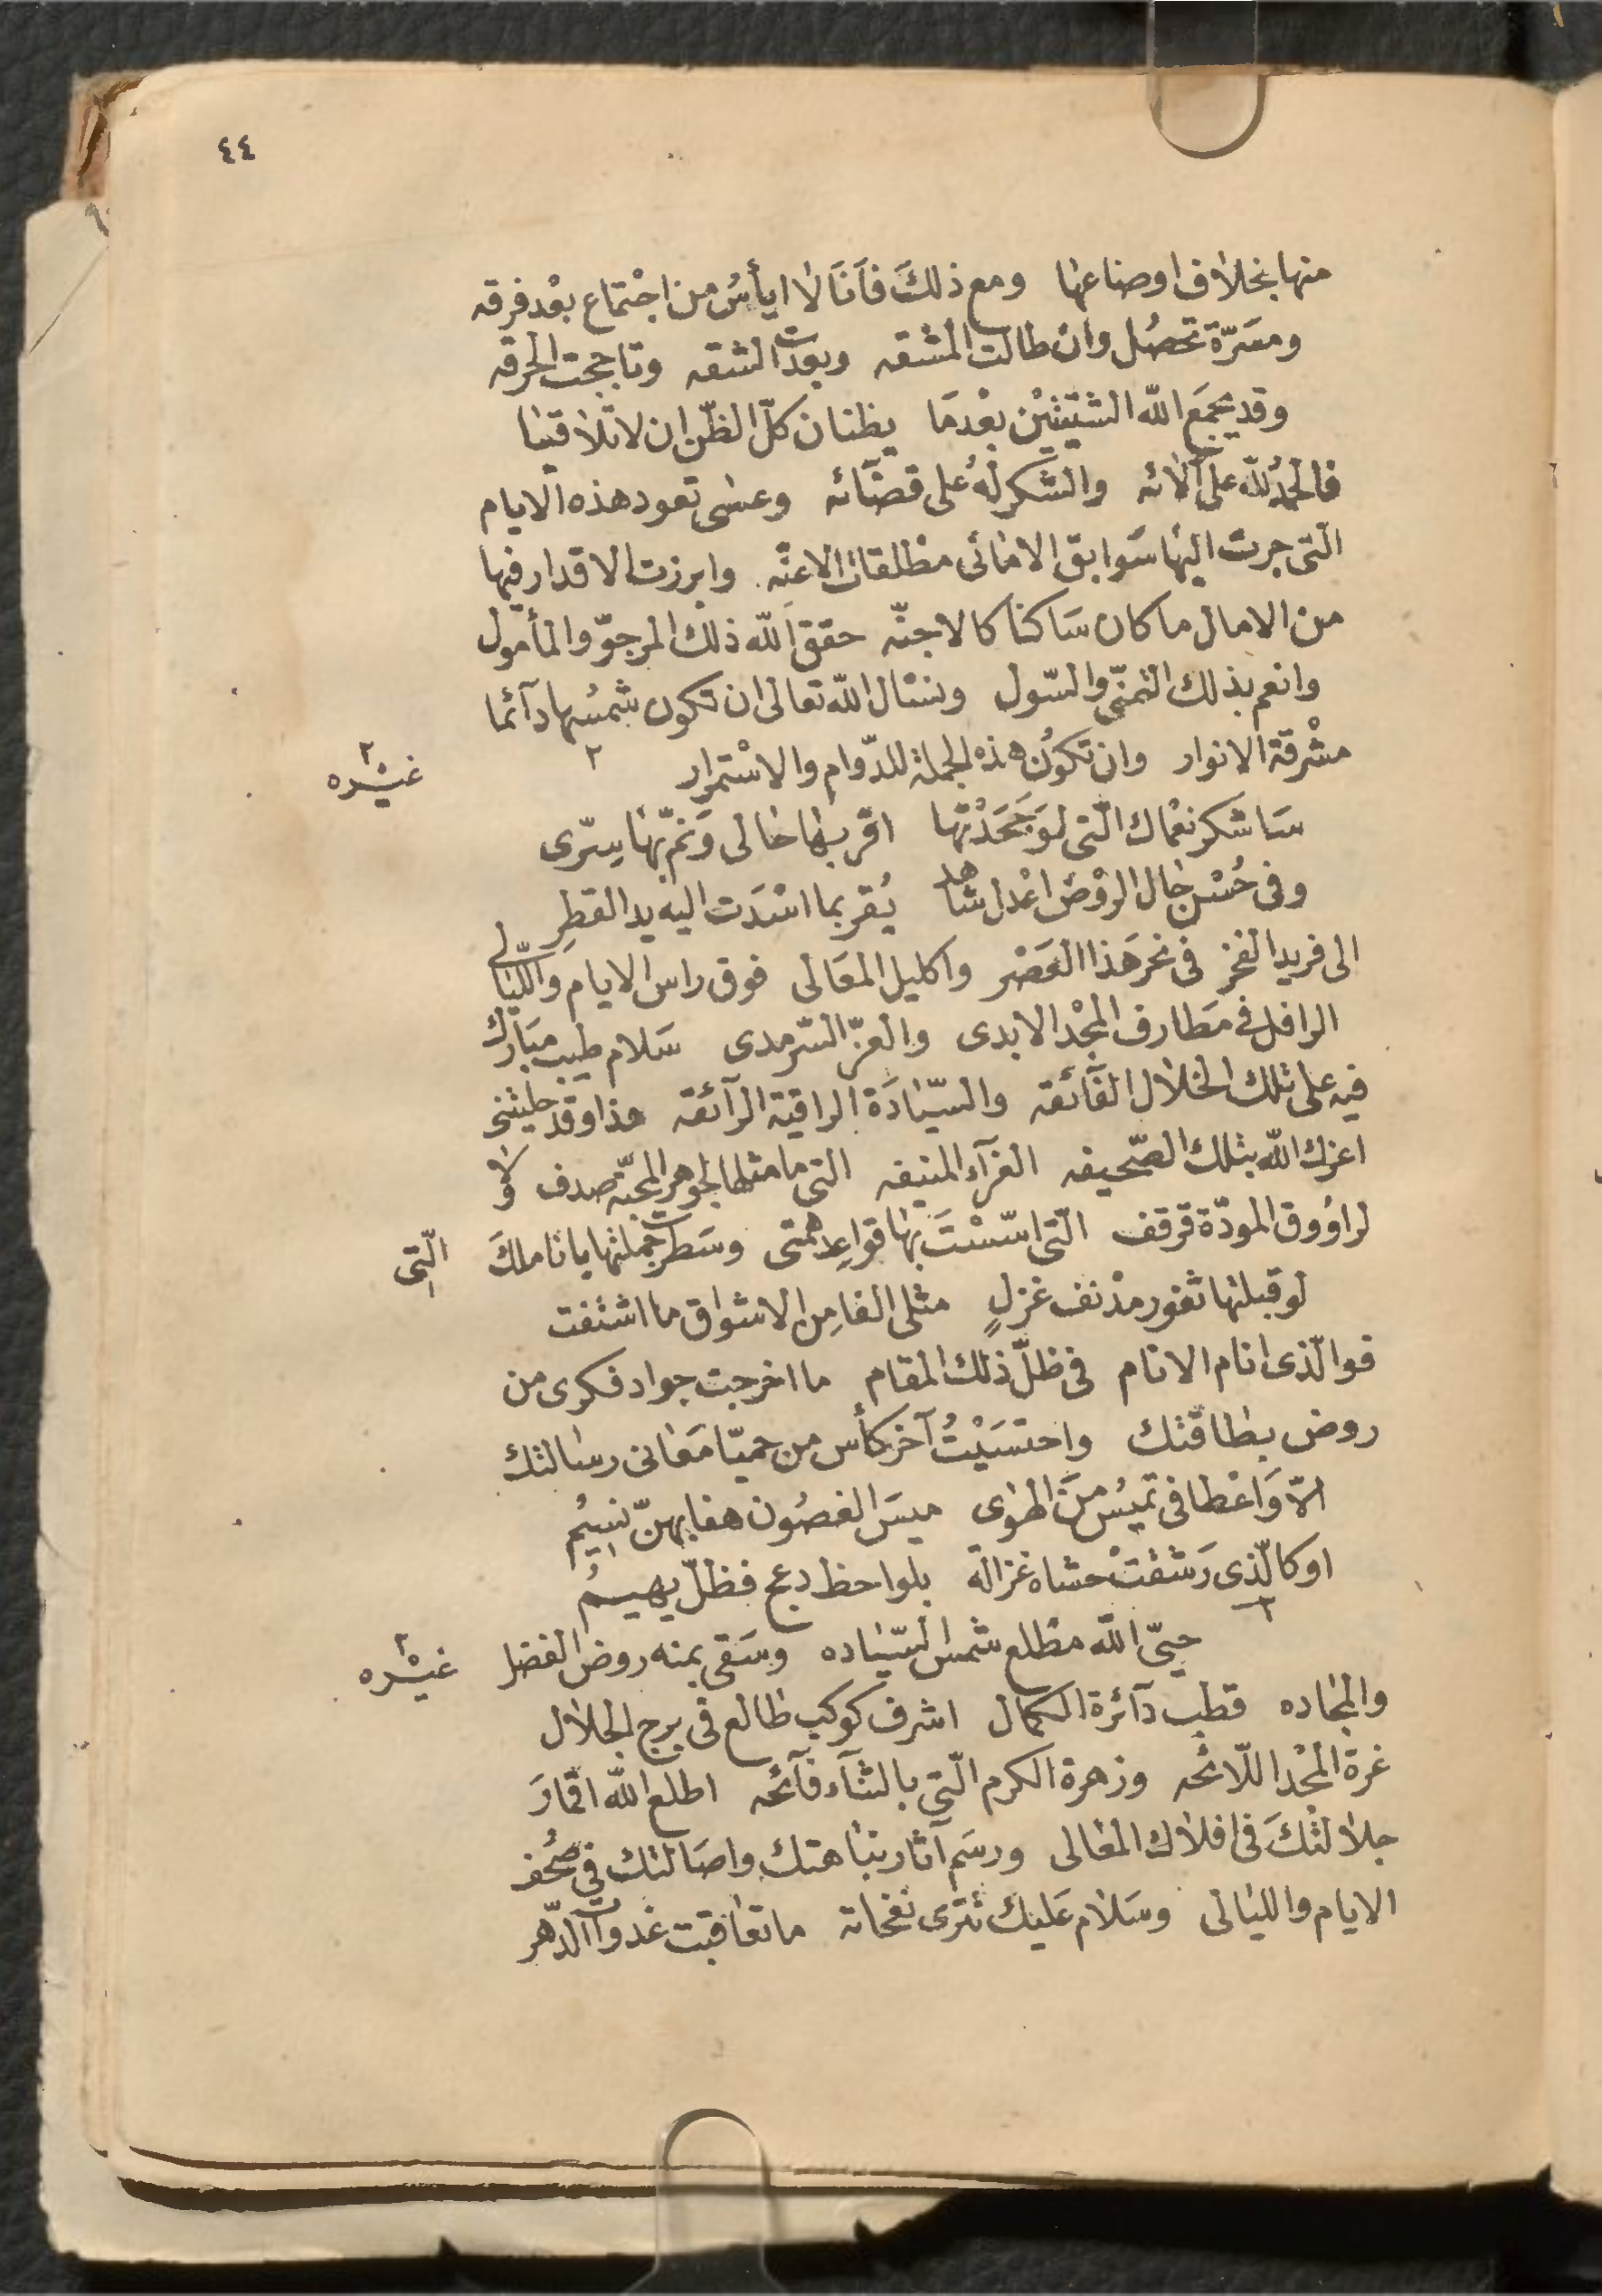 ٤٤
منها بخلاف اوضاعها ومع ذلكَ فاَنَا لا ايأسُ من اجْتماع بعْد فرقه
ومسَرّة تحصُل وان طالت المشقه وبعدت الشقه وتاججت الحرقه
وقد يجمَع الله الشتيتيْن بعْدمَا يظنان كلّ الظّن ان لا تلاقيا
فالحمدُ لله على آلائه والشكر لهُ على قضَآئه وعسٰى تعود هذه الايام
التى جرت اليها سَوابق الامانى مطلقات الاعنّه وابرزت الاقدار فيها
من الامال ما كان سَاكنا كالاجنّه حقق الله ذلك المرجوّ والمأمول
وانعم بذلك التمنّى والسّول ونسْال الله تعالى ان تكون شمسُها دآئما
مشْرقة الانوار وان تكوُن هذه الجملة للدّوام والاسْتمرار ٢
غيْره ٢
سَاشكر نعْماك الّتى لوَ جَحَدْتها اقر بها حالى وَنمّ بهَا سِرّى
وفى حُسْن حال الروْض اعْدل شاهد يُقر بما اسْدَت اليه يد القطرِ
الى فريد الفخر فى نحر هَذا العَصْر واكليل المعَالى فوق راس الايام وَاللّيالى
الرافل فى مَطارف المجْد الابدى والعزّ السّرمدى سَلام طيب مبَارك
فيه على تلك الخلال الفآئقه والسّيَادَة الراقية الرآئقه هذا وقد حليتنى
اعزك الله بتلك الصّحيفه الغرّآء المنيفه التى ما مثلها لجوهر المحبّة صدف ولا
لراوُوق المودّة قرقف الّتى اسّسْتَ بهَا قواعِد همّتى وسَطرت جملتها بانا ملكَ الّتى
لو قبلتها ثغور مدْنف غزلٍ مثلى الفا مِن الاشواق ما اشتفت
فوالّذى انام الانام فى ظلّ ذلك المقام ما اخرجت جواد فكرى من
روض بطاقتك واحتسَيْتُ آخر كأس من حميّا مَعَانى رسَالتك
الاّ وَاعْطافى تميسُ مَنَ الهوٰى ميسَ الغصُون هفا بهنّ نسِيمُ
او كالّذى رَشقتْ حشاه غزالة بلواحظ دعج فظلّ يهيمُ
٢
حيّى الله مطلع شمس السّيَاده وسَقى بمنه روض الفضل
غيْره ٢
والمجَاده قطب دآئرة الكمال اشرف كوكب طالع فى برج الجلال
غرة المجْد اللّائحه وزهرة الكرم الّتى بالثنآء فآئحه اطلع الله اقمَارَ
جلالتكَ فى افلاك المعَالى ورسَم آثار نبَاهتك واصَالتك فى صُحُف
الايام والليَالى وسَلام عَليك تترٰى نفحَاته ما تعَاقبت غدوات الدّهر